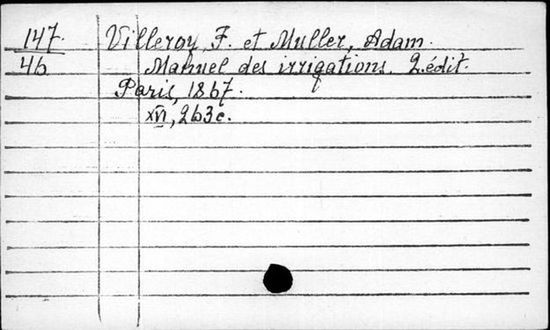 147. Villeroy, F. et Muller, Adam.
46 Manuel des irrigations. 2.édit.
Paris, 1867.
XVI, 263c.